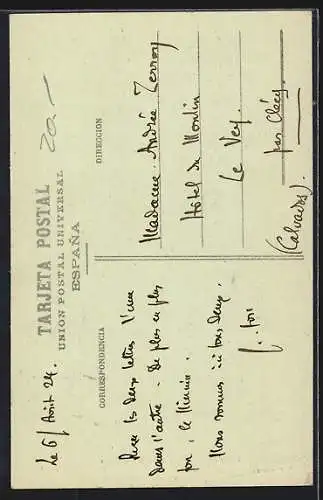 TARJETA POSTAL
UNION POSTAL UNIVERSAL
ESPAÑA
20.-
CORRESPONDENCIA
DIRECCION
Le 6/ Août 24.
les deux lettres l'une
dans l'autre. De plus en plus
fou, le Ministre.
Nous sommes ici tous deux,
Madame Andrée Terroy
Hôtel du Moulin
Le Vey.
par Clécy
(Calvados).